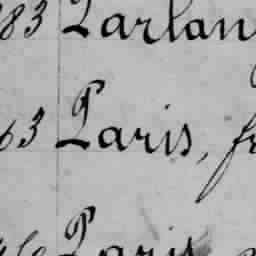 83 Parlan
63 Paris, fr
Paris